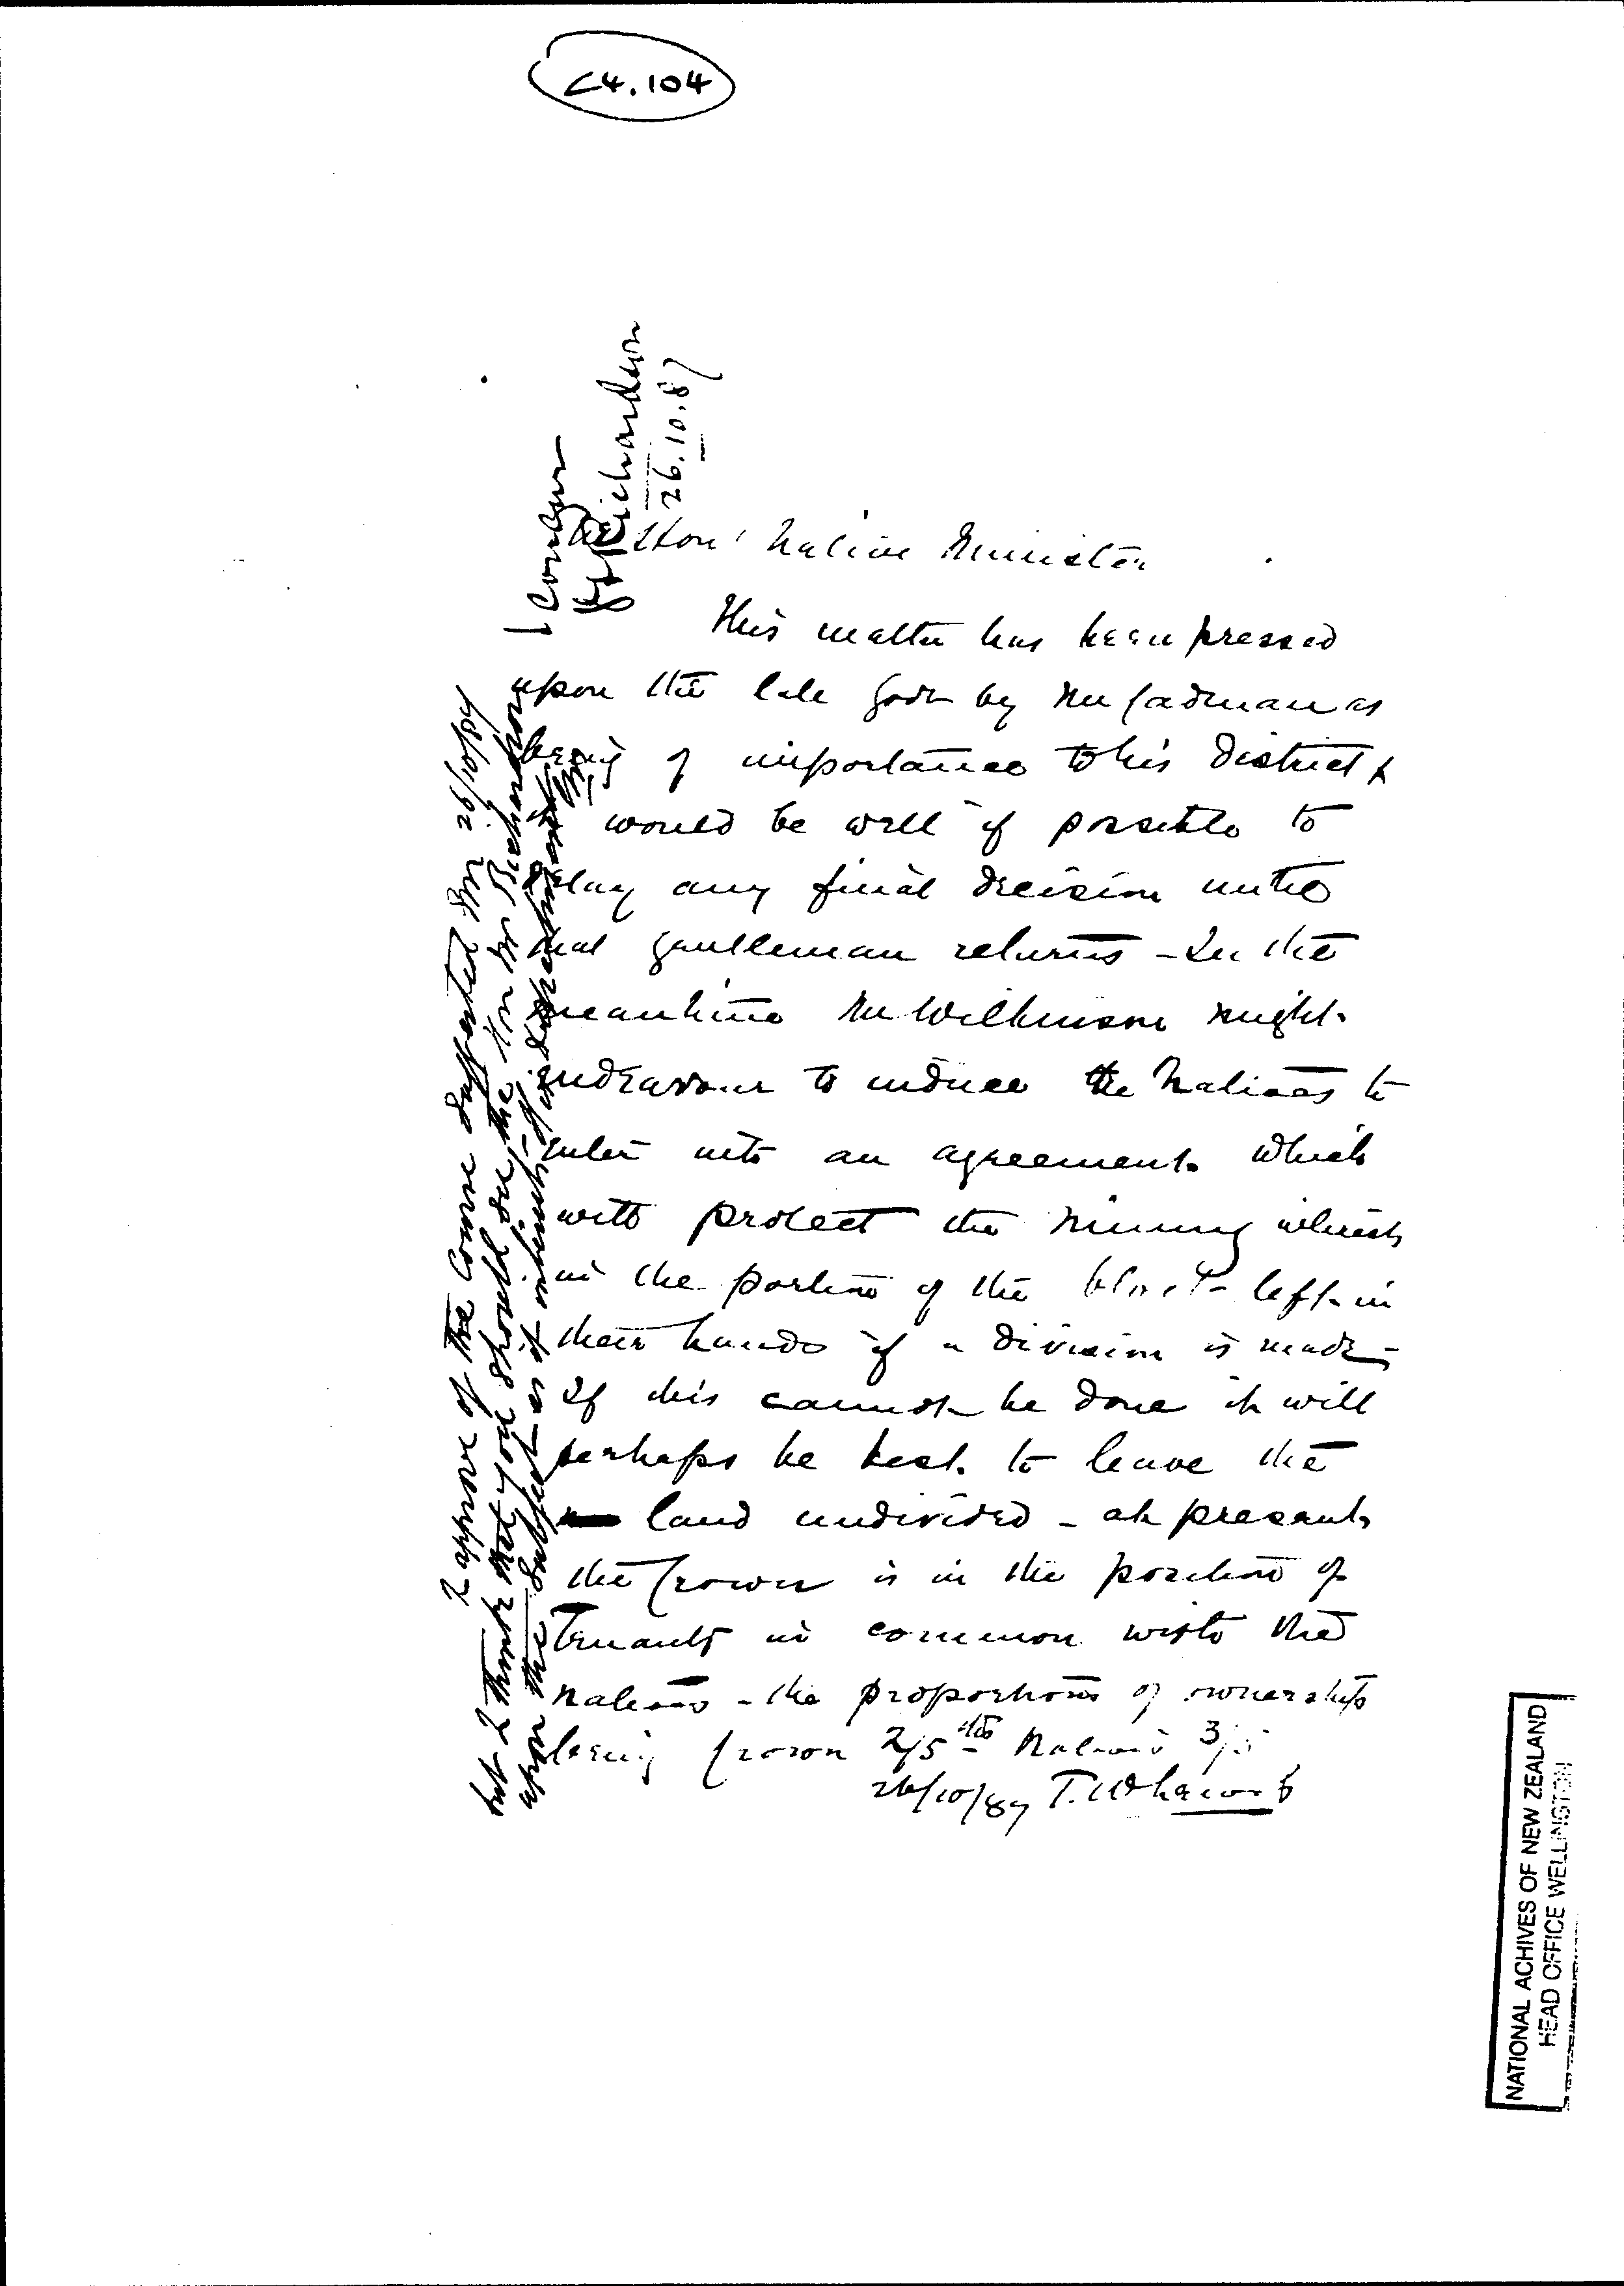 C4.104
The Hon' Native Minister
This matter has been pressed
upon the late Govt by Mr Cadman as
being of importance to his District &
it would be well if possible to
delay any final decision until
that gentleman returns - In the
meantime Mr Wilkinson might
endeavour to induce the Natives to
enter into an agreement which
will protect the mining
in the portion of the block left in
their hands if a division is made -
If this cannot be done it will
perhaps be best to leave the
land undivided - at present
the Crown is in the position of
Tenants in common with the
Natives - the proportions of ownership
being Crown 2/5ths Natives 3/5
26/10/87 T. W. Lewis
I approve of the course suggested 26/10/87
but I think that you should see the Hon Mr Richardson
upon the subject as it
I Concur
Richardson
26.10.87
NATIONAL ACHIVES OF NEW ZEALAND
HEAD OFFICE WELLINGTON